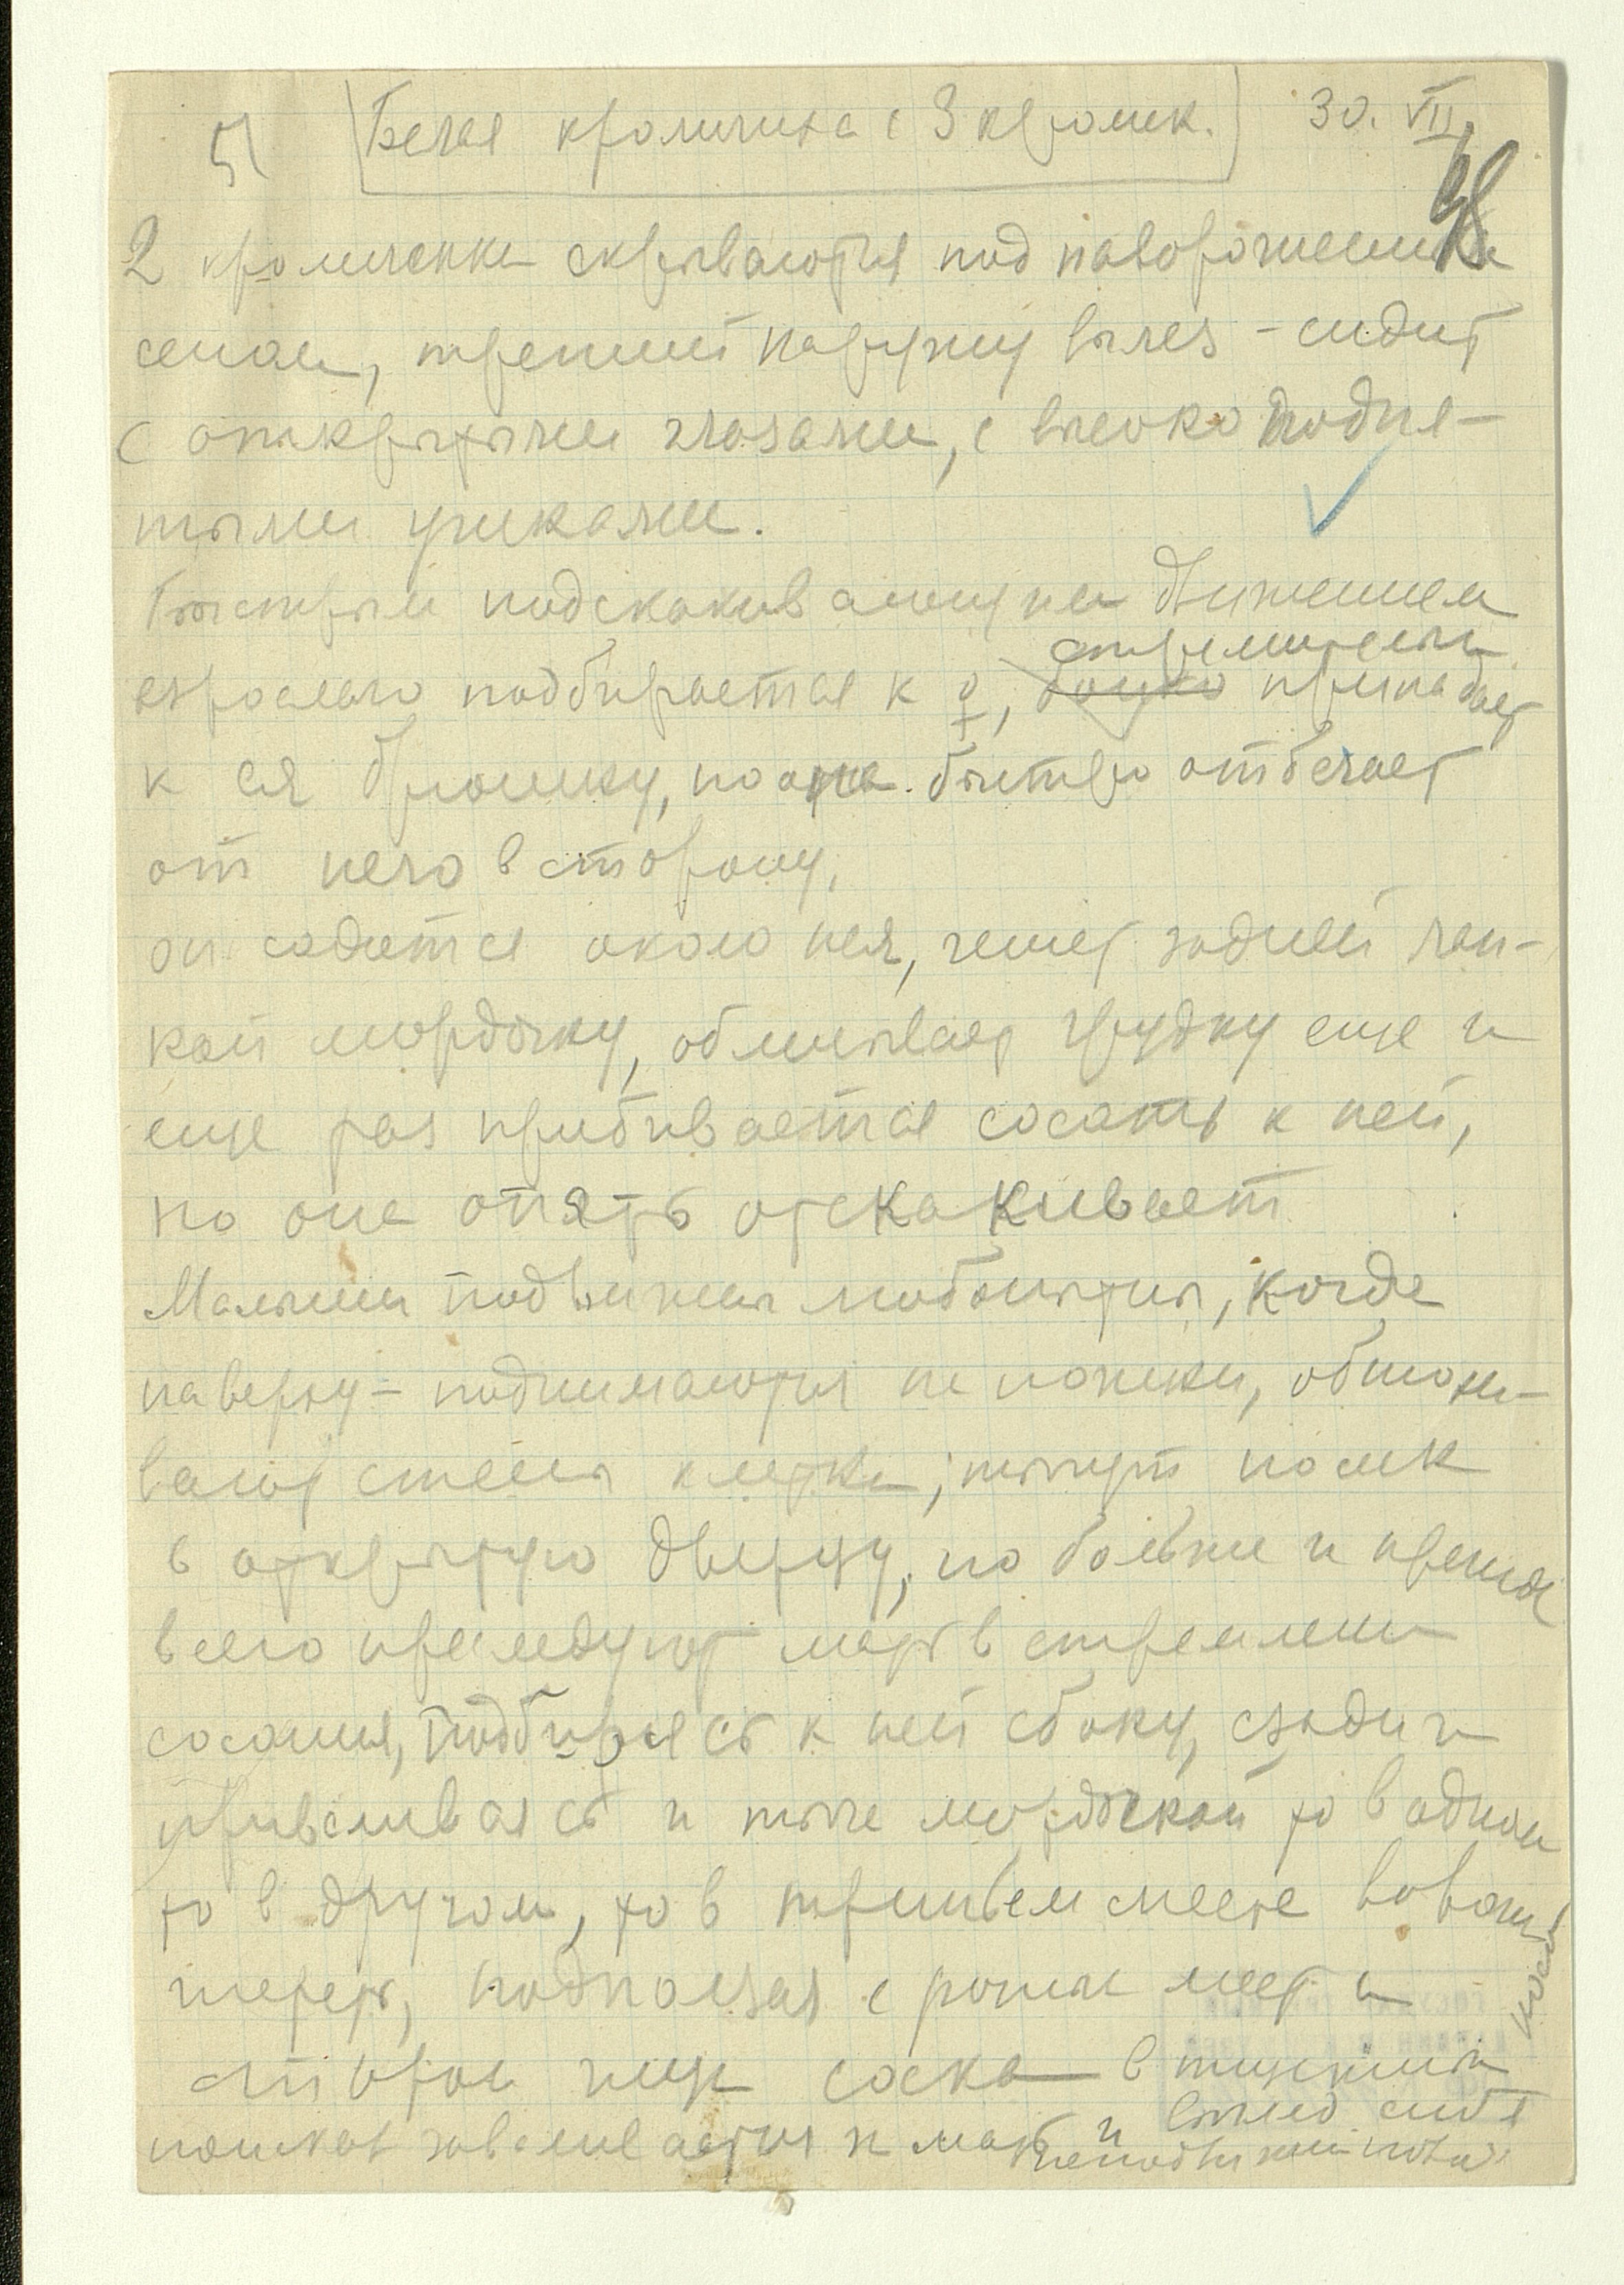 5) Белая крольчиха с 3 кролик. 30. VII
98
2 крольченка скрываются под навороженным
сеном, третий наружу вылез – сидит
с открытыми глазами, с высоко подня-
тыми ушками.
Быстрым подскакивающим движением
стремительно
взрослого подбирается к ♀, припадает
к ея брюшку, но она быстро отбегает
от него в сторону,
он садится около нея, чешет задней лап-
кой мордочку, обмывает грудку еще и
еще раз прибивается сосать к ней,
но она опять отскакивает
Малыши подвижны любопытны, когда
наверху – поднимаются на ножки, обнюхи-
вают стены клетки, тычут носик
в открытую дверцу, но больше и прежде
всего преследуют мать в стремлении
сосания, подбираясь к ней сбоку, сзади и
приваливаясь и тыча мордочкой то в одном
то в другом, то в третьем месте
подползая с разных мест и
сторон ища соска в тщетных
поисках заваливается на мать и